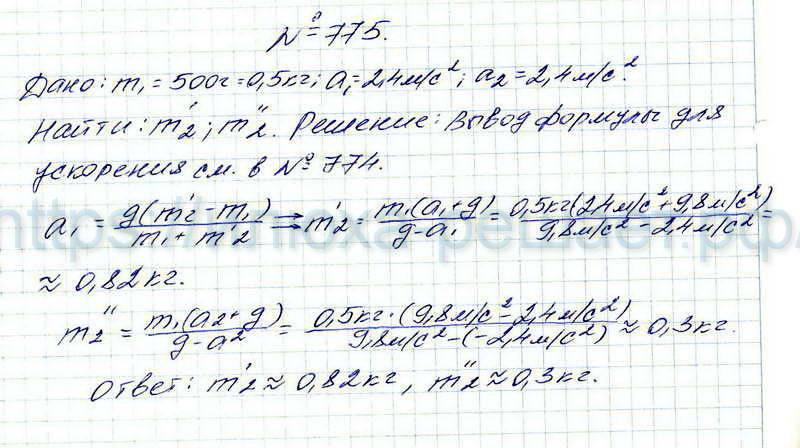 №775.
Дано: m₁ = 500г = 0,5кг; a₁ = 2,4м/с²; a₂ = 2,4м/с².
Найти: m'₂; m''₂. Решение: Вывод формулы для
ускорения см. в №774.
a₁ = g(m'₂ - m₁) / m₁ + m'₂ → m'₂ = m₁(a₁+g) / g-a₁ = 0,5кг(2,4м/с² + 9,8м/с²) / 9,8м/с² - 2,4м/с² =
≈ 0,82кг.
m''₂ = m₁(a₂+g) / g-a² = 0,5кг·(9,8м/с² - 2,4м/с²) / 9,8м/с² - (-2,4м/с²) ≈ 0,3кг.
Ответ: m'₂ ≈ 0,82кг, m''₂ ≈ 0,3кг.